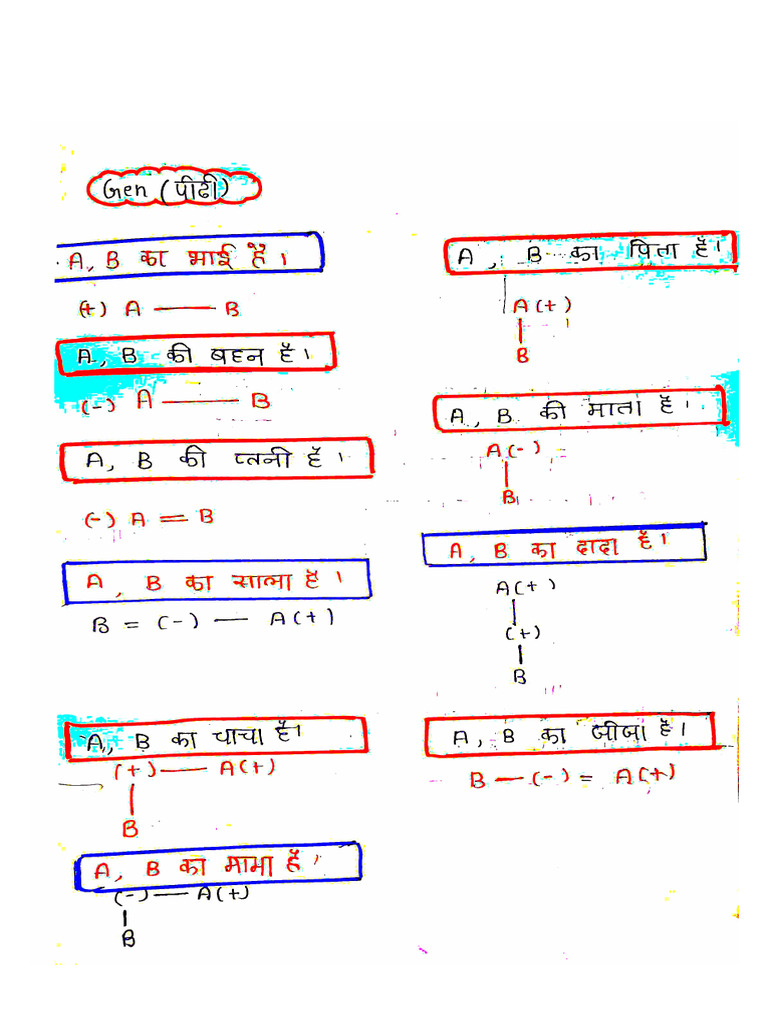 Gen (पीढी)
A, B का भाई है।
(+) A — B
A, B की बहन है।
(-) A — B
A, B की प्तनी है।
(-) A = B
A, B का साला है।
B = (-) — A(+)
A, B का चाचा है।
(+) — A(+)
|
B
A, B का मामा है।
(-) — A(+)
|
B
A, B का पिता है।
A(+)
|
B
A, B की माता है।
A(-)
|
B
A, B का दादा है।
A(+)
|
(+)
|
B
A, B का जीजा है।
B — (-) = A(+)